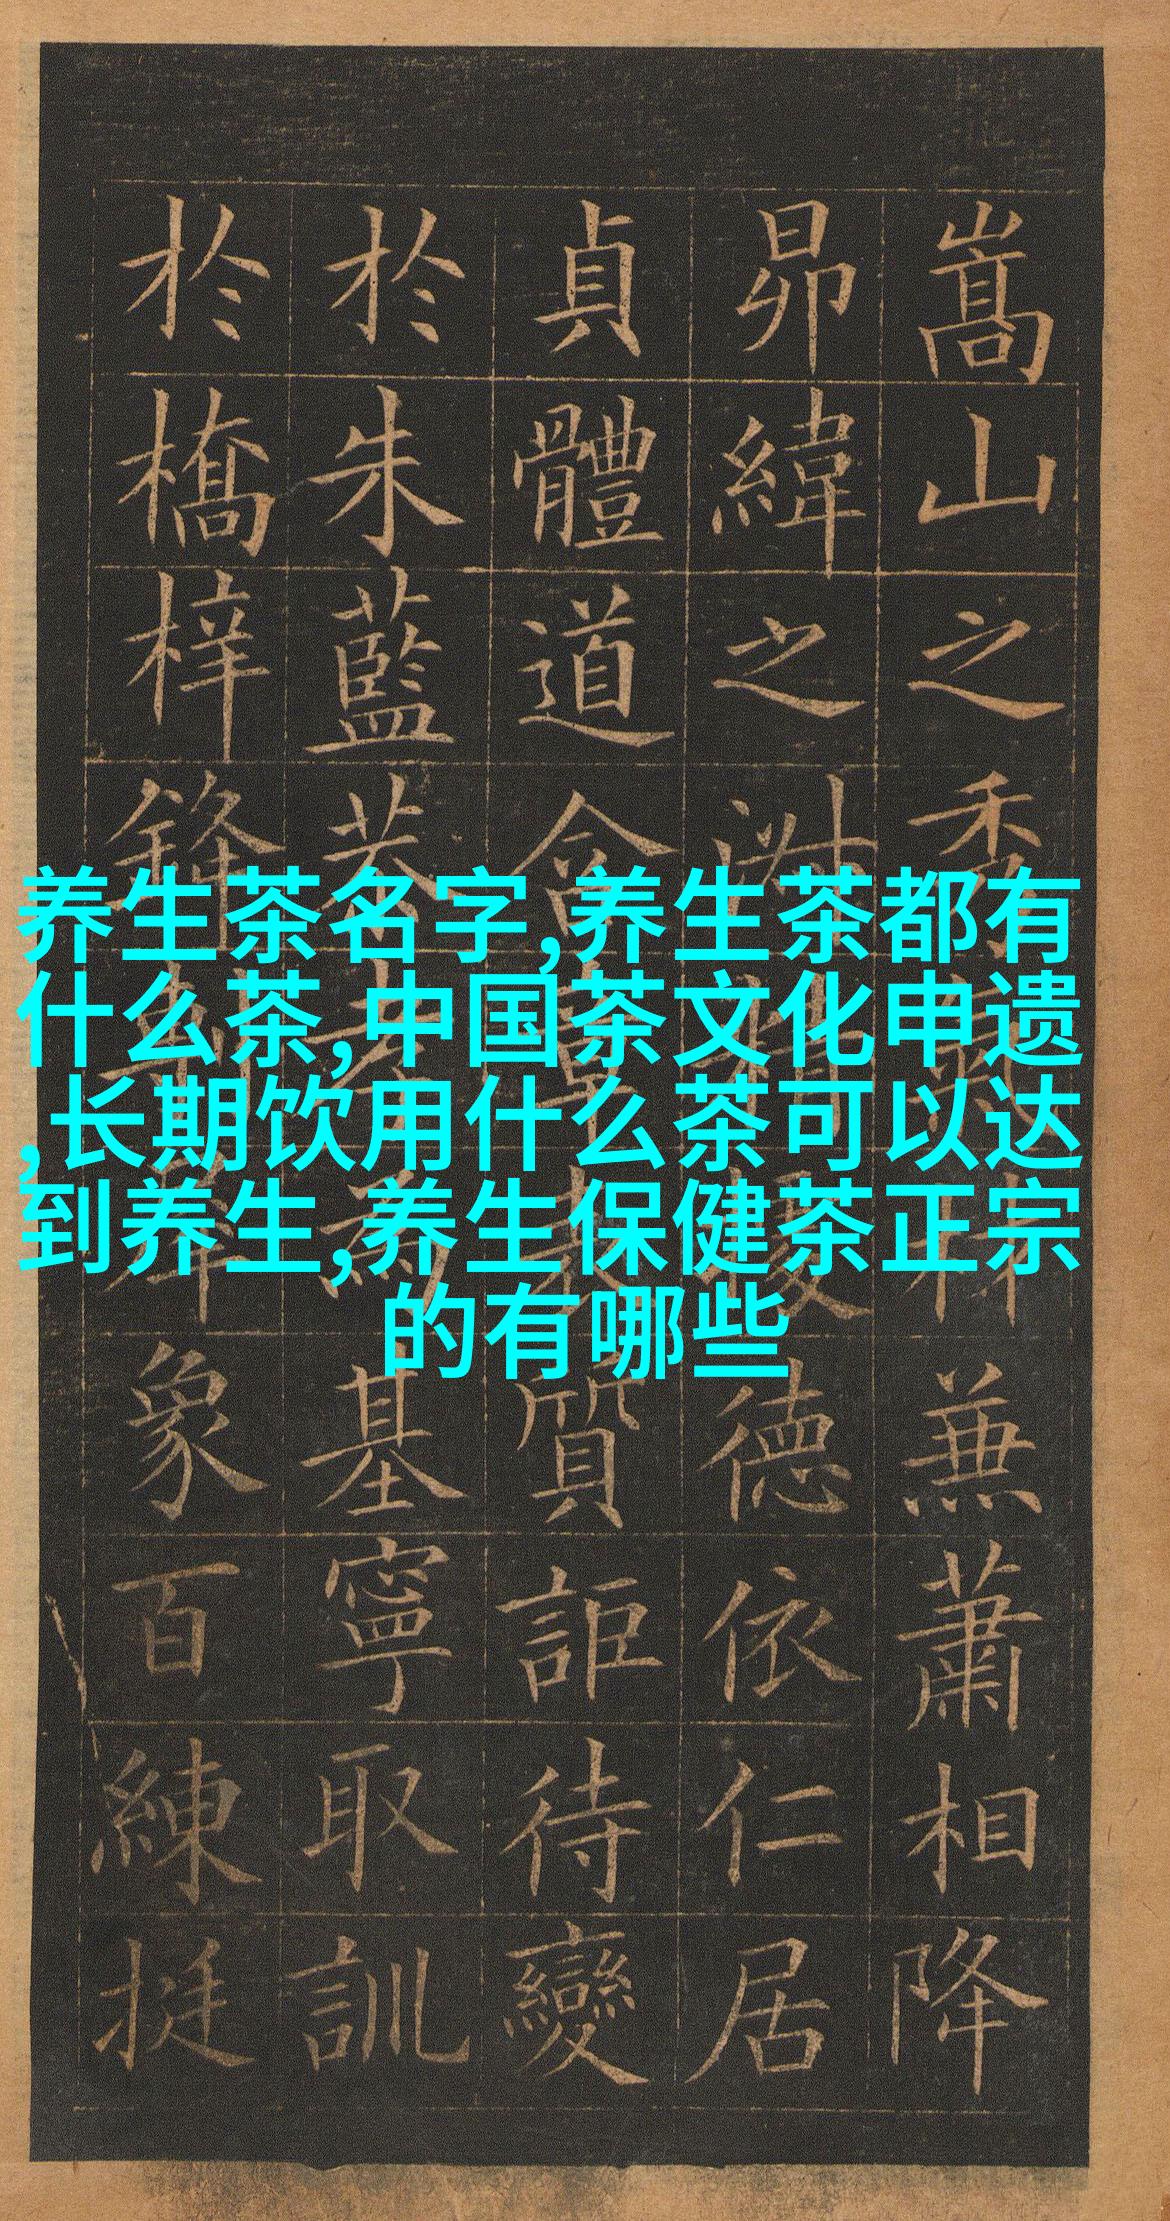 嵩山之秀材兼蕭相降
昴緯之淑精德依仁居
貞體道含章表質詎待變
於朱藍恭孝為基寧取訓
於橋梓鋒象百練挺
养生茶名字,养生茶都有
什么茶,中国茶文化申遗
,长期饮用什么茶可以达
到养生,养生保健茶正宗
的有哪些